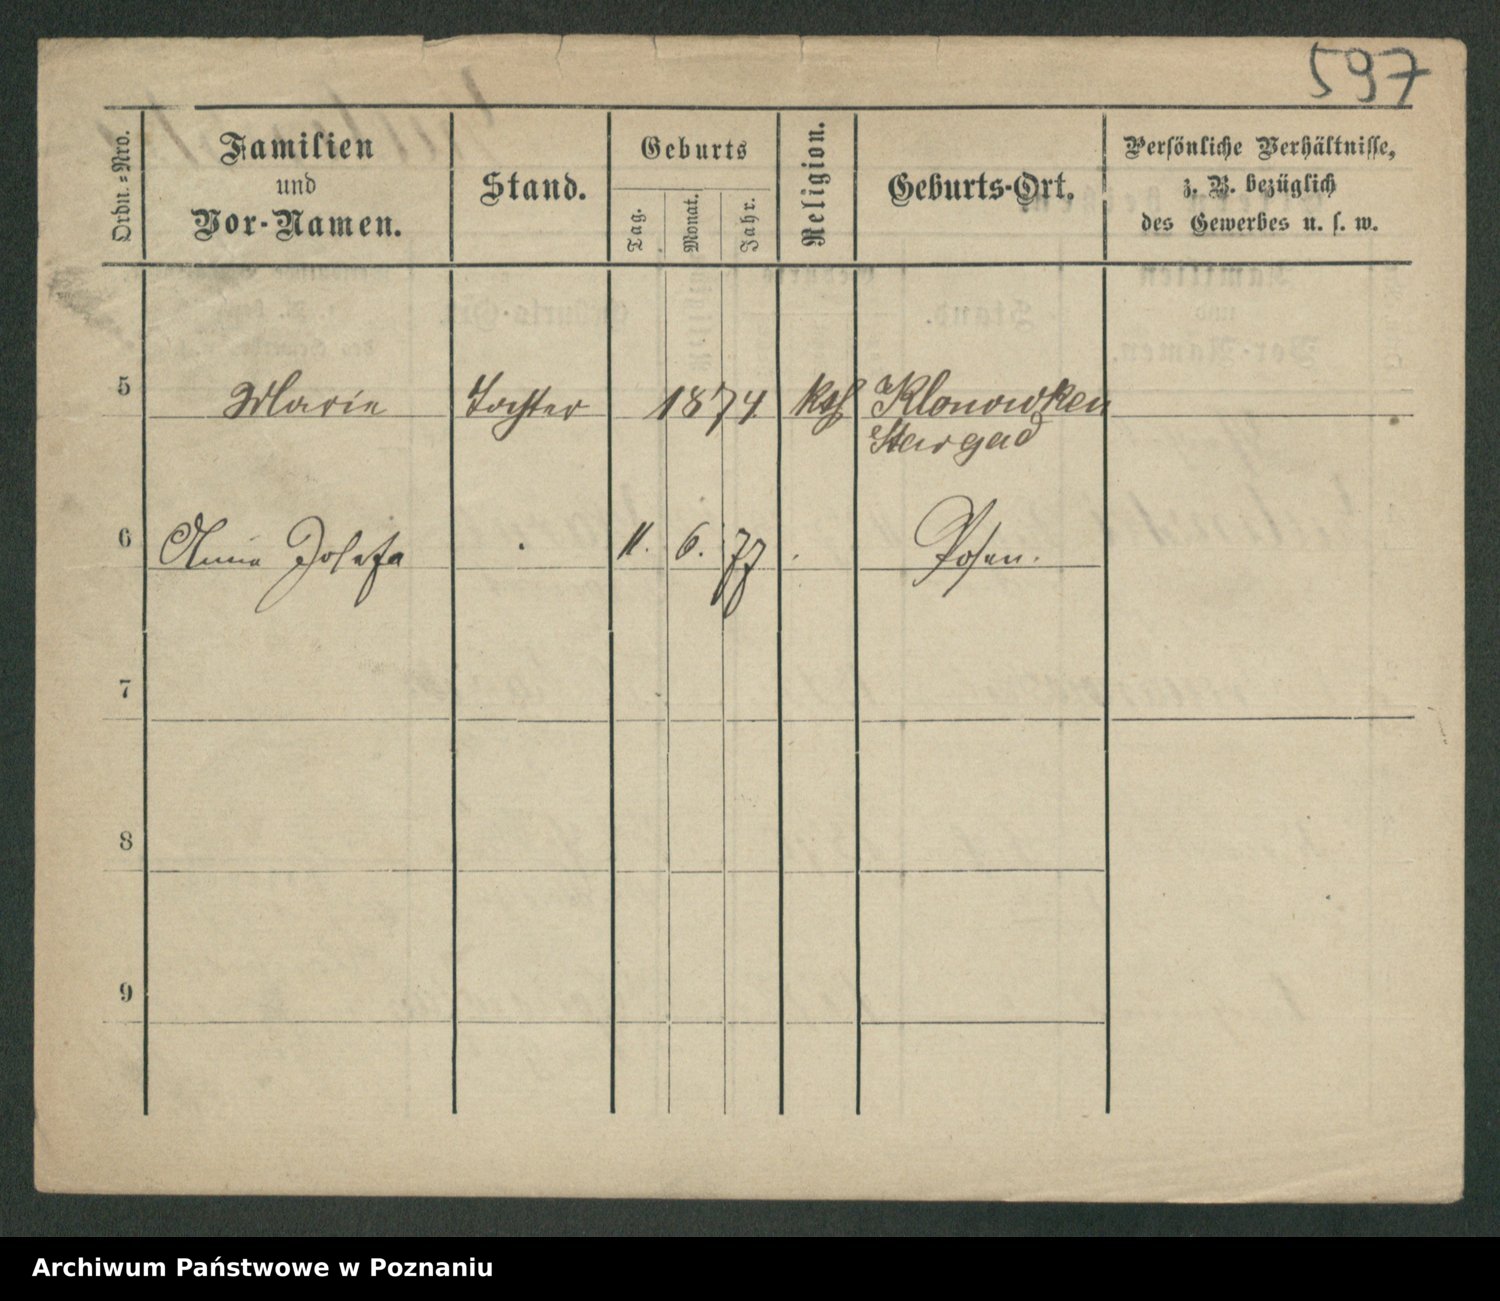 597
Ordn.-Nro.
Familien
und
Vor-Namen.
Stand.
Geburts
Tag.
Monat.
Jahr.
Religion.
Geburts-Ort.
Persönliche Verhältnisse,
z. B. bezüglich
des Gewerbes u. s. w.
5 Marie Tochter 1874 kath Klonowken
Stargad
6 Anna Josefa . 11. 6. 77 . Posen.
7
8
9
Archiwum Państwowe w Poznaniu